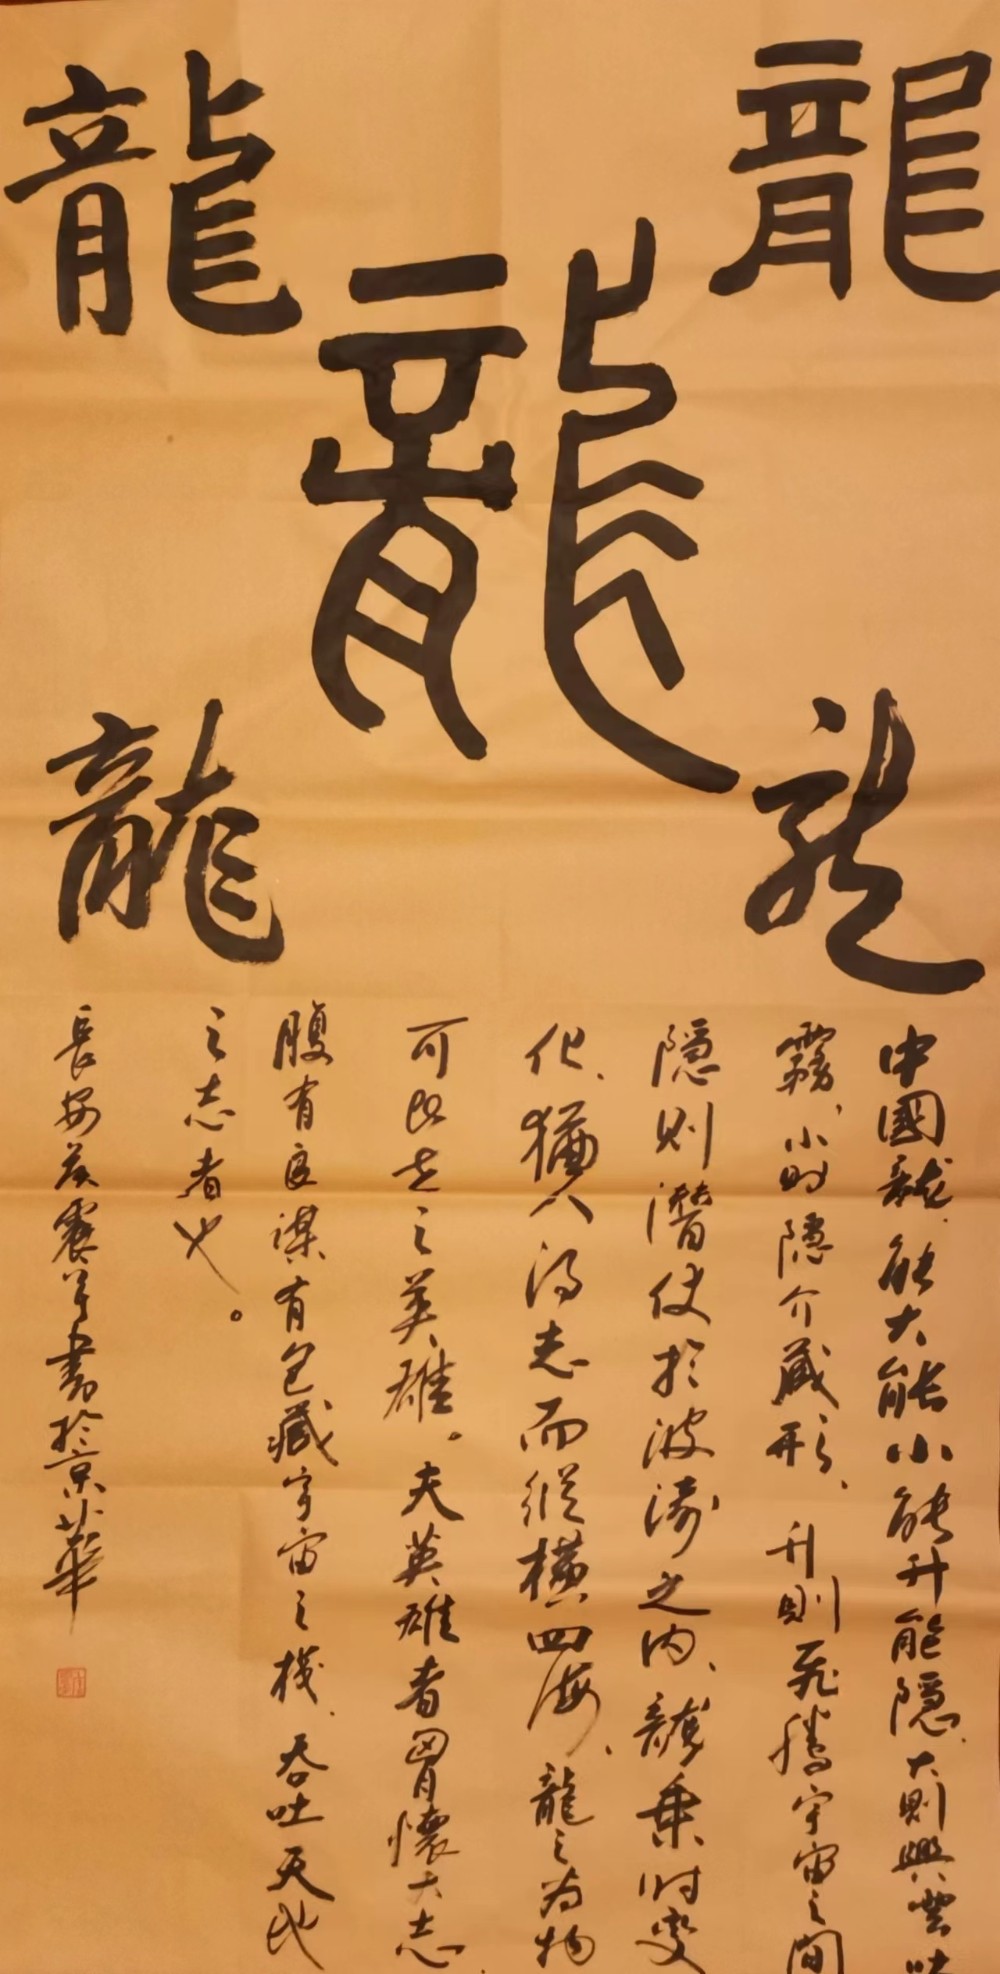 龍
龍
龍
龍
龍
中國龍、能大能小能升能隱、大則興雲吐
霧、小則隱介藏形、升則飛騰宇宙之間
隱則潛伏於波濤之內、龍乘時變
化、猶人得志而縱橫四海、龍之為物
可比世之英雄。夫英雄者胸懷大志、
腹有良謀有包藏宇宙之機、吞吐天地
之志者也。
長安 書於京華